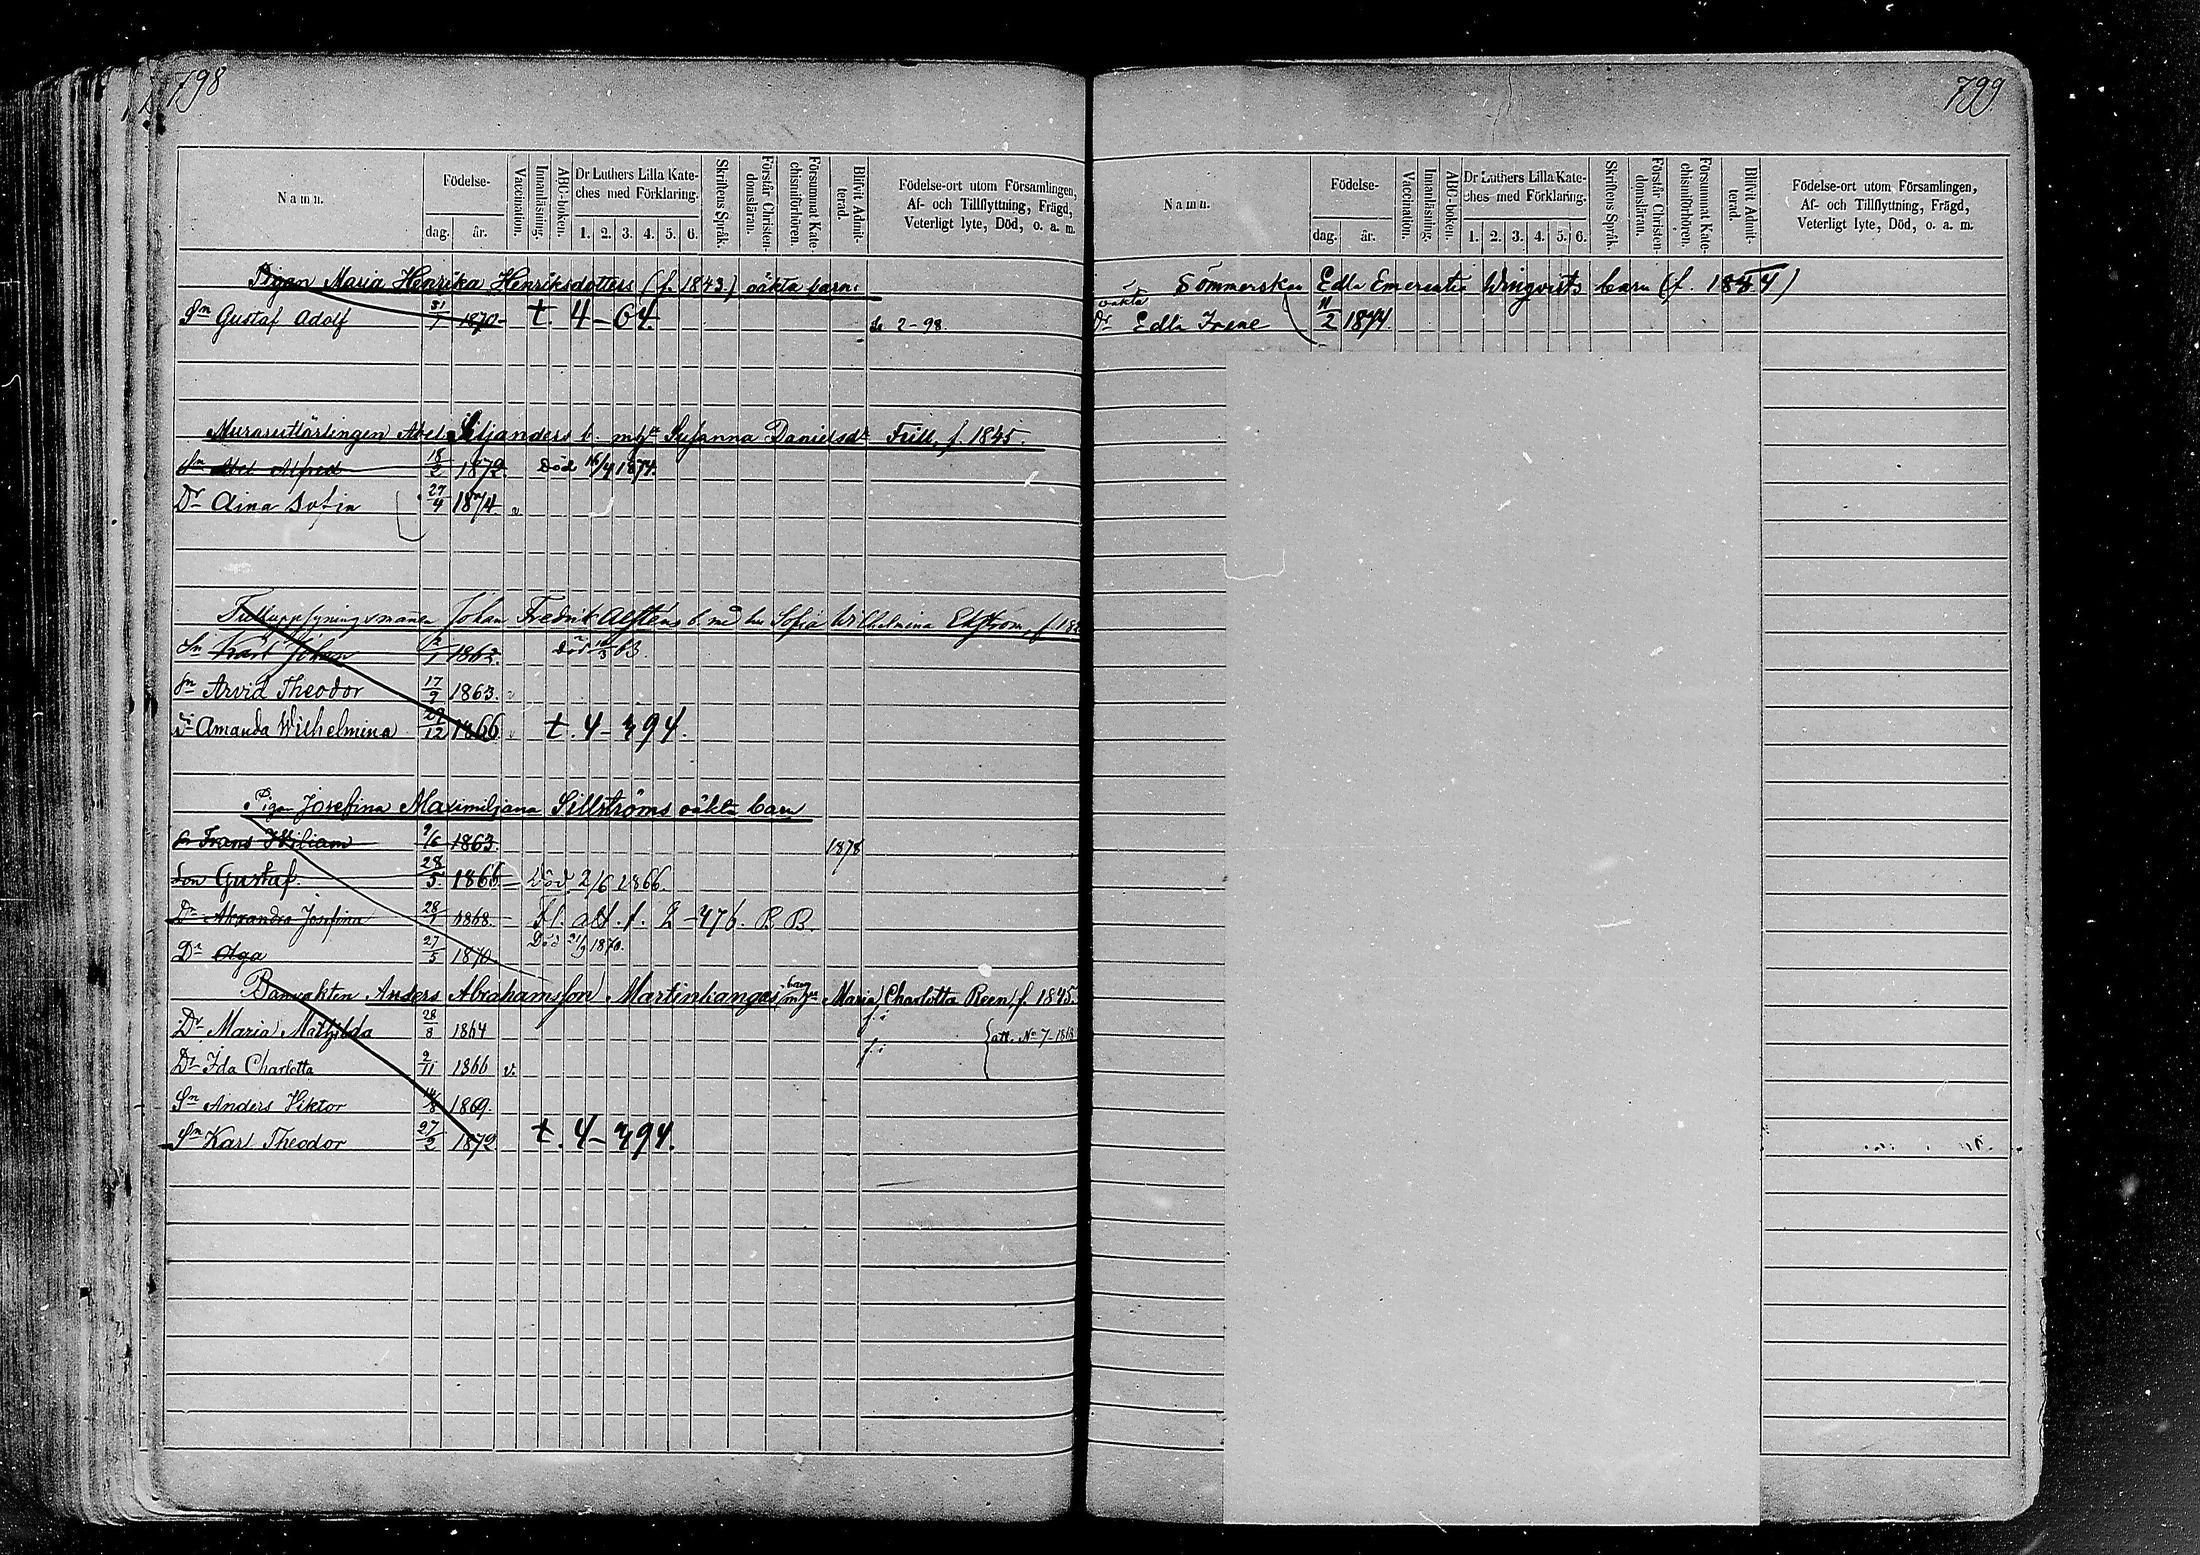 798
Namn.
Födelse-
dag. år.
Vaccination.
Innanläsning.
ABC-boken.
Dr Luthers Lilla Kate-
ches med Förklaring.
1. 2. 3. 4. 5. 6.
Skriftens Språk.
Förstår Christen-
domsläran.
Försummat Kate-
chismiförhören.
Blifvit Admit-
terad.
Födelse-ort utom Församlingen,
Af- och Tillflyttning, Frägd,
Veterligt lyte, Död, o. a. m.
Pigan Maria Henrika Henriksdotters (f. 1843.) oäkta barn:
Sn Gustaf Adolf 31/7 1870 t. 4-64. Se 2-98.
Abel Siljanders b. m h Susanna Danielsdr Frill, f. 1845.
Sn Abel Alfred 18/2 1872 Död 16/4 1874.
Dr Aina Sofia 27/4 1874 v
Tulluppsyningsmannen Johan Fredrik Alfténs b. med hu Sofia Wilhelmina Ekström, f. 18
Sn Karl Johan 1862. död 63.
Sn Arvid Theodor 17/9 1863. v
Dr Amanda Wilhelmina 29/12 1866 v t. 4-394.
Pigan Josefina Maximiljana Sillströms oäkta barn
Sn Frans Wiliam 9/6 1863. 1878
Son Gustaf. 28/5 1866 Död 2/6 1866.
Dr Alexandra Josefina 28/1 1868. Fl. att. f. 2-476. B. B.
Dr Olga 27/5 1870. Död 21/9 1870.
Banvakten Anders Abrahamsson Martinkangas barn m h Maria Charlotta Reen, f. 1845.
Dr Maria Mathilda 28/8 1864 f. i att. No 7-1868
Dr Ida Charlotta 2/11 1866 v. f. i
Sn Anders Viktor 14/8 1869.
Sn Karl Theodor 27/2 1872 t. 4-394.
799
Namn.
Födelse-
dag. år.
Vaccination.
Innanläsning.
ABC-boken.
Dr Luthers Lilla Kate-
ches med Förklaring.
1. 2. 3. 4. 5. 6.
Skriftens Språk.
Förstår Christen-
domsläran.
Försummat Kate-
chismiförhören.
Blifvit Admit-
terad.
Födelse-ort utom Församlingen,
Af- och Tillflyttning, Frägd,
Veterligt lyte, Död, o. a. m.
Sömmerskan Edla Emerentia Winqvists barn (f. 1844)
oäkta
Dr Edla Irene 11/2 1874.